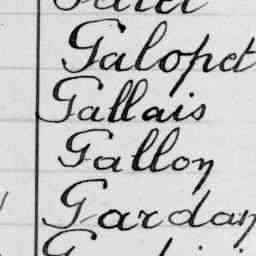 Galopet
Gallais
Gallon
Gardan